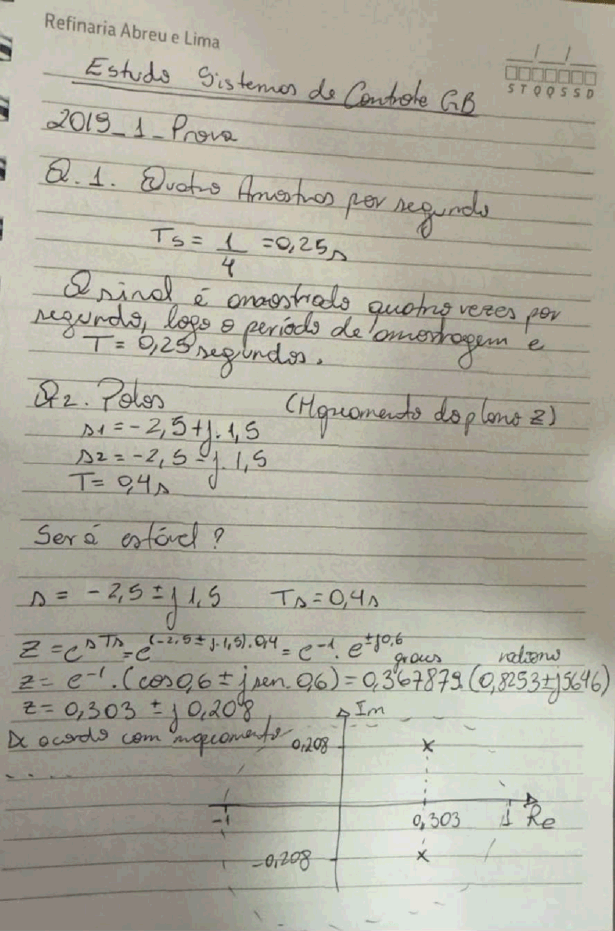 Refinaria Abreu e Lima
__/__/__
S T Q Q S S D
Estudo Sistemas de Controle GB
2019_1_Prova
Q.1. Quatro Amostras por segundo
Ts = 1/4 = 0,25s
O sinal é amostrado quatro vezes por
segundo, logo o período de amostragem e
T = 0,25 segundos.
Q2. Polos (Mapeamento do plano Z)
s1 = -2,5 + j.1,5
s2 = -2,5 - j.1,5
T = 0,4s
Será estável?
s = -2,5 ± j 1,5 Ts = 0,4s
Z = e^sTs = e^(-2,5 ± j.1,5).0,4 = e^-1 . e^±j0,6
graus radiano
z = e^-1 . (cos 0,6 ± j sen. 0,6) = 0,367879.(0,8253 ± j5646)
z = 0,303 ± j 0,208
De acordo com mapeamento
....
Im
0,208 x
-1 0,303 1 Re
-0,208 x